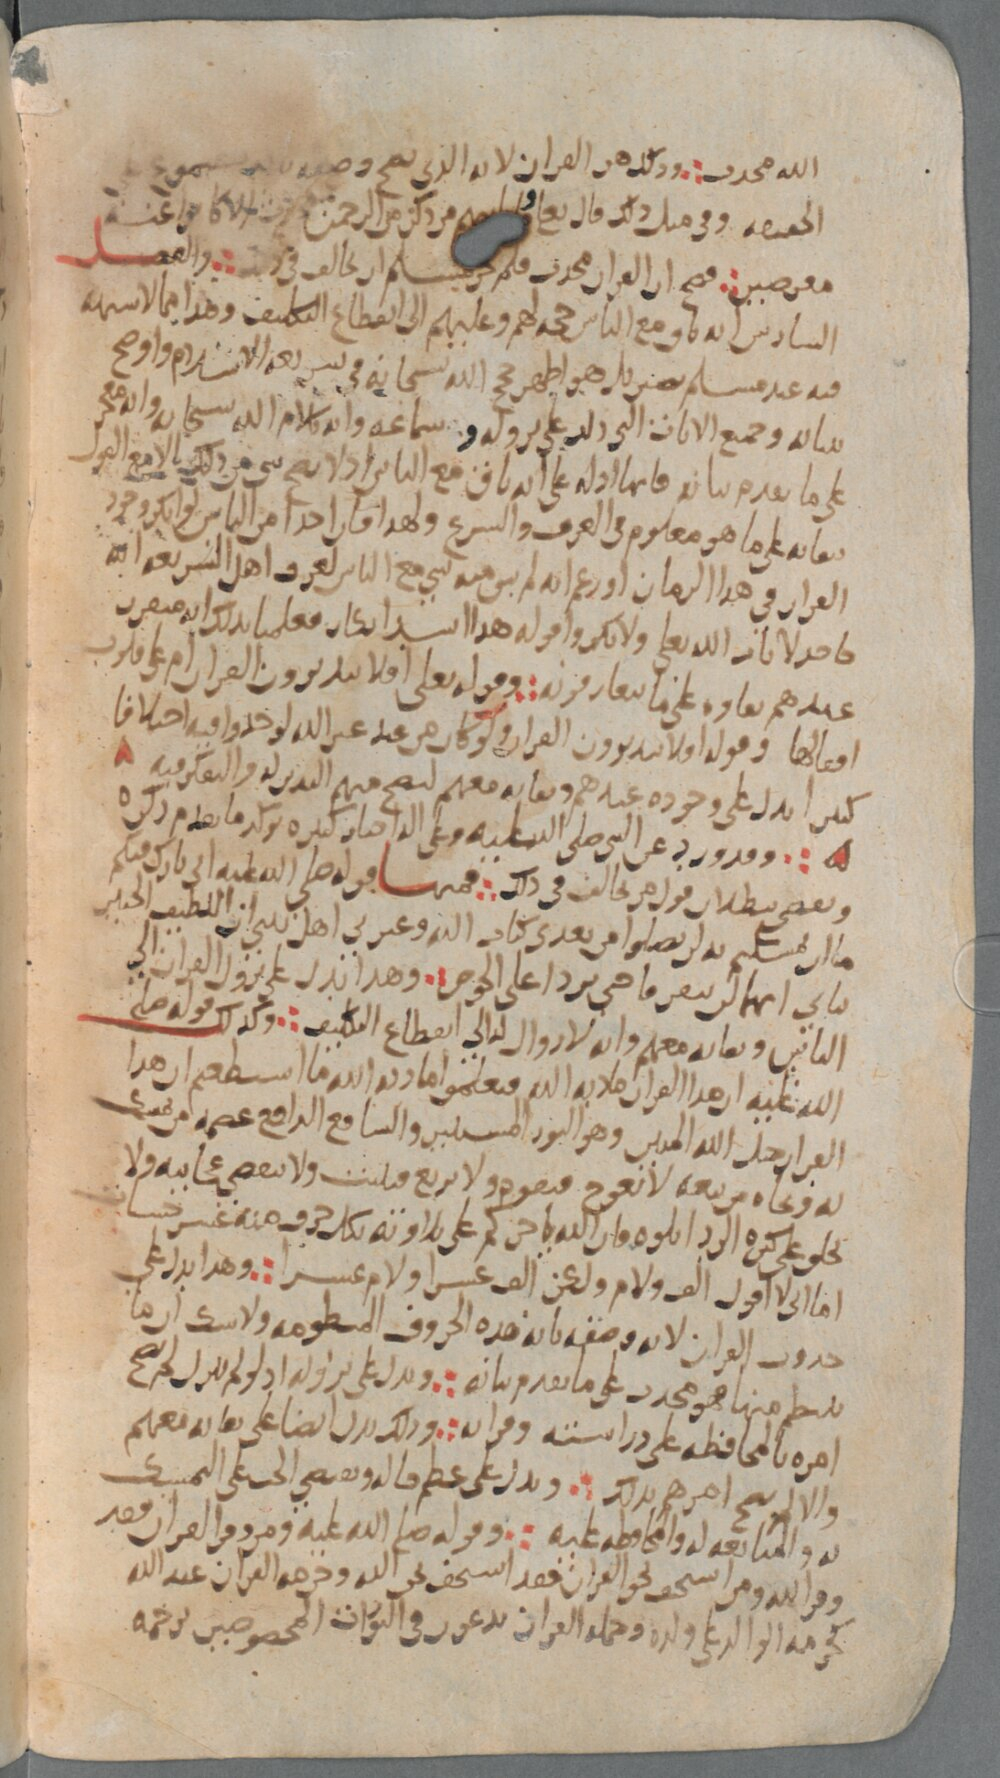 الله محدث وذلك هو القران لانه الذي يصح وصفه بانه
الحقيقه وفي مثل ذلك قال تعالى وما ياتيهم من ذكر من الرحمن محدث الا كانوا عنه
معرضين فصح ان القران محدث فلم يجز لمسلم ان يخالف في ذلك والفصل
السادس انه باق مع الناس حجه لهم وعليهم الى انقطاع التكليف وهذا مما لا شبهه
فيه عند مسلم بصير بل هو اظهر حجج الله سبحانه في شريعه الاسلام واوضح
بيانه وجميع الايات التي دلت على نزوله و سماعه وانه كلام الله سبحانه وانه معجز
على ما تقدم بيانه فانها ادله على انه باق مع الناس اذ لا يصح شي من ذلك الا مع القول
ببقائه على ما هو معلوم في العرف والشرع ولهذا فان احدا من الناس لو انكر وجود
القران في هذا الزمان او زعم انه لم يبق منه شي مع الناس لعرف اهل الشريعه انه
جاحد لايات الله تعالى ولانكروا قوله هذا اشد انكار فعلمنا بذلك انه متقرر
عندهم بقاوه على ما يتعارفونه وقوله تعالى افلا يتدبرون القران ام على قلوب
اقفالها وقوله افلا يتدبرون القران ولو كان من عند غير الله لوجدوا فيه اختلافا
كثيرا يدل على وجوده عندهم وبقائه معهم ليصح منهم التدبر له والتفكر فيه
وقد ورد عن النبي صلى الله عليه وعلى اله اخبار كثيره توكد ما تقدم ذكره
وتقضي ببطلان قول من يخالف في ذلك فمنها قوله صلى الله عليه اني تارك فيكم
ما ان تمسكتم به لن تضلوا من بعدي كتاب الله وعترتي اهل بيتي ان اللطيف الخبير
نباني انهما لن يفترقا حتى يردا علي الحوض وهذا يدل على نزول القران الى
الناس وبقائه معهم وانه لا زوال له الى انقطاع التكليف وكذلك قوله صلى
الله عليه ان هذا القران مادبه الله فتعلموا مادبه الله ما استطعتم ان هذا
القران حبل الله المتين وهو النور المستبين والشافع الدافع عصمه من تمسك
به ونجاه من تبعه لا يعوج فيقوم ولا يزيغ فيثبت ولا تنقضي عجائبه ولا
يخلق على كثره الرد اتلوه فان الله ياجركم على تلاوته بكل حرف منه عشر حسنات
اما اني لا اقول الف ولام ولكن الف عشرا ولام عشرا وهذا يدل على
حدوث القران لانه وصفه بانه هذه الحروف المنظومه ولا شك ان ما
ينتظم منها هو محدث على ما تقدم بيانه ويدل على نزوله اذ لو لم ينزل لم يصح
امره بالمحافظه على دراسته وقراته وذلك يدل ايضا على بقائه معهم
والا لم يصح امرهم بذلك ويدل على عظم حاله ويقتضي الحث على التمسك
به والمتابعه له والمحافظه عليه وقوله صلى الله عليه ومن وقر القران فقد
وقر الله ومن استخف بحق القران فقد استخف بحق الله وحرمه القران عند الله
كحرمه الوالد على ولده وحمله القران يدعون في التوراه المخصوصين برحمه